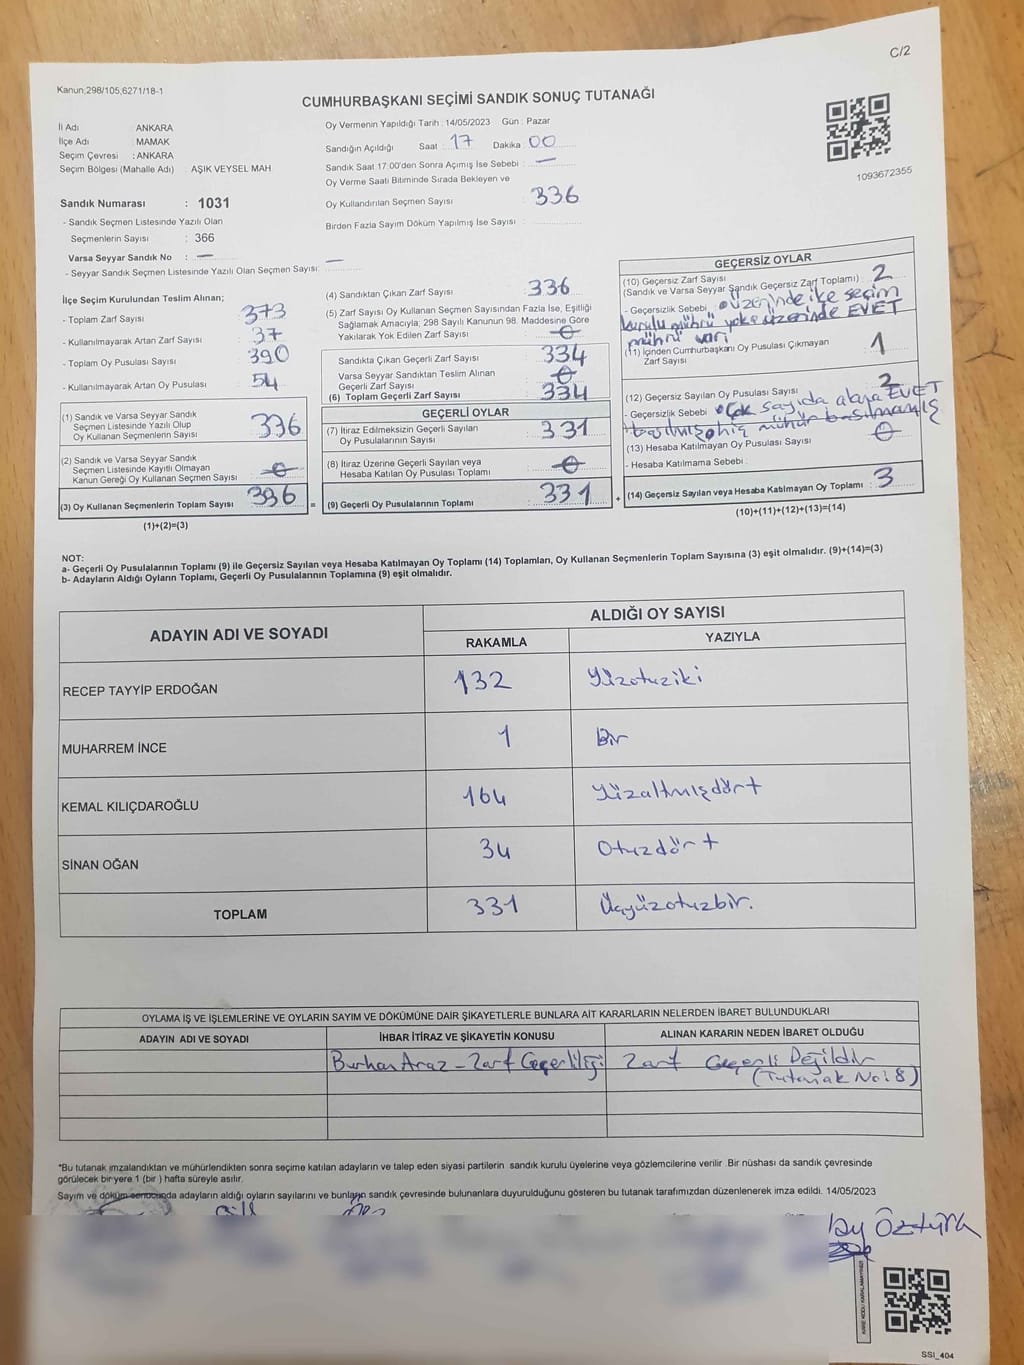 C/2
Kanun;298/105,6271/18-1
CUMHURBAŞKANI SEÇİMİ SANDIK SONUÇ TUTANAĞI
İl Adı : ANKARA
İlçe Adı : MAMAK
Seçim Çevresi : ANKARA
Seçim Bölgesi (Mahalle Adı) : AŞIK VEYSEL MAH
Sandık Numarası : 1031
- Sandık Seçmen Listesinde Yazılı Olan
Seçmenlerin Sayısı : 366
Varsa Seyyar Sandık No : —
- Seyyar Sandık Seçmen Listesinde Yazılı Olan Seçmen Sayısı: —
Oy Vermenin Yapıldığı Tarih : 14/05/2023 Gün : Pazar
Sandığın Açıldığı Saat : 17 Dakika 00
Sandık Saat 17:00'den Sonra Açımış İse Sebebi : —
Oy Verme Saati Bitiminde Sırada Bekleyen ve
Oy Kullandırılan Seçmen Sayısı : 336
Birden Fazla Sayım Döküm Yapılmış İse Sayısı :
1093672355
İlçe Seçim Kurulundan Teslim Alınan;
- Toplam Zarf Sayısı : 373
- Kullanılmayarak Artan Zarf Sayısı : 37
- Toplam Oy Pusulası Sayısı : 390
- Kullanılmayarak Artan Oy Pusulası : 54
(1) Sandık ve Varsa Seyyar Sandık
Seçmen Listesinde Yazılı Olup
Oy Kullanan Seçmenlerin Sayısı 336
(2) Sandık ve Varsa Seyyar Sandık
Seçmen Listesinde Kayıtlı Olmayan
Kanun Gereği Oy Kullanan Seçmen Sayısı 0
(3) Oy Kullanan Seçmenlerin Toplam Sayısı 336 =
(1)+(2)=(3)
(4) Sandıktan Çıkan Zarf Sayısı : 336
(5) Zarf Sayısı Oy Kullanan Seçmen Sayısından Fazla İse, Eşitliği
Sağlamak Amacıyla; 298 Sayılı Kanunun 98. Maddesine Göre
Yakılarak Yok Edilen Zarf Sayısı : 0
Sandıkta Çıkan Geçerli Zarf Sayısı : 334
Varsa Seyyar Sandıktan Teslim Alınan
Geçerli Zarf Sayısı : 0
(6) Toplam Geçerli Zarf Sayısı : 334
GEÇERLİ OYLAR
(7) İtiraz Edilmeksizin Geçerli Sayılan
Oy Pusulalarının Sayısı : 331
(8) İtiraz Üzerine Geçerli Sayılan veya
Hesaba Katılan Oy Pusulası Toplamı : 0
(9) Geçerli Oy Pusulalarının Toplamı : 331 +
GEÇERSİZ OYLAR
(10) Geçersiz Zarf Sayısı
(Sandık ve Varsa Seyyar Sandık Geçersiz Zarf Toplamı) : 2
- Geçersizlik Sebebi : Üzerinde ilçe seçim
kurulu mührü yok • üzerinde EVET
mührü var
(11) İçinden Cumhurbaşkanı Oy Pusulası Çıkmayan
Zarf Sayısı : 1
(12) Geçersiz Sayılan Oy Pusulası Sayısı : 2
- Geçersizlik Sebebi • Çok sayıda alana EVET
basılmış • hiç mühür basılmamış
(13) Hesaba Katılmayan Oy Pusulası Sayısı : 0
- Hesaba Katılmama Sebebi :
(14) Geçersiz Sayılan veya Hesaba Katılmayan Oy Toplamı : 3
(10)+(11)+(12)+(13)=(14)
NOT:
a- Geçerli Oy Pusulalarının Toplamı (9) ile Geçersiz Sayılan veya Hesaba Katılmayan Oy Toplamı (14) Toplamları, Oy Kullanan Seçmenlerin Toplam Sayısına (3) eşit olmalıdır. (9)+(14)=(3)
b- Adayların Aldığı Oyların Toplamı, Geçerli Oy Pusulalarının Toplamına (9) eşit olmalıdır.
ADAYIN ADI VE SOYADI
ALDIĞI OY SAYISI
RAKAMLA YAZIYLA
RECEP TAYYİP ERDOĞAN 132 Yüzotuziki
MUHARREM İNCE 1 Bir
KEMAL KILIÇDAROĞLU 164 Yüzaltmışdört
SİNAN OĞAN 34 Otuzdört
TOPLAM 331 Üçyüzotuzbir.
OYLAMA İŞ VE İŞLEMLERİNE VE OYLARIN SAYIM VE DÖKÜMÜNE DAİR ŞİKAYETLERLE BUNLARA AİT KARARLARIN NELERDEN İBARET BULUNDUKLARI
ADAYIN ADI VE SOYADI İHBAR İTİRAZ VE ŞİKAYETİN KONUSU ALINAN KARARIN NEDEN İBARET OLDUĞU
Burhan Araz - Zarf Geçerliliği Zarf Geçerli Değildir
(Tutanak No: 8)
*Bu tutanak imzalandıktan ve mühürlendikten sonra seçime katılan adayların ve talep eden siyasi partilerin sandık kurulu üyelerine veya gözlemcilerine verilir .Bir nüshası da sandık çevresinde
görülecek bir yere 1 (bir ) hafta süreyle asılır.
Sayım ve döküm sonucunda adayların aldığı oyların sayılarını ve bunların sandık çevresinde bulunanlara duyurulduğunu gösteren bu tutanak tarafımızdan düzenlenerek imza edildi. 14/05/2023
Öztürk
KARE KODU KARALAMAYINIZ!
SSI_404